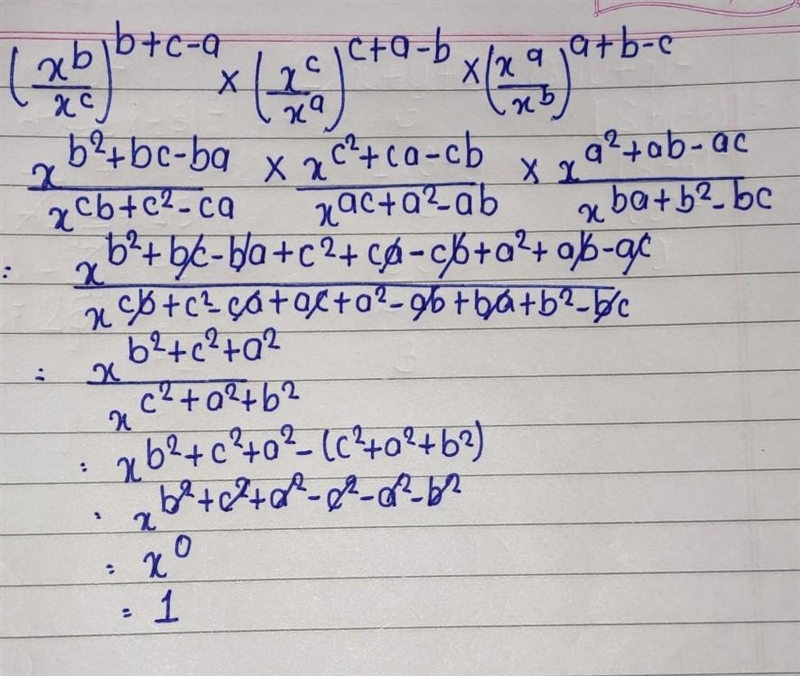 (x^b/x^c)^(b+c-a) × (x^c/x^a)^(c+a-b) × (x^a/x^b)^(a+b-c)
x^(b²+bc-ba)/x^(cb+c²-ca) × x^(c²+ca-cb)/x^(ac+a²-ab) × x^(a²+ab-ac)/x^(ba+b²-bc)
: x^(b²+bc-ba+c²+ca-cb+a²+ab-ac)/x^(cb+c²-ca+ac+a²-ab+ba+b²-bc)
= x^(b²+c²+a²)/x^(c²+a²+b²)
: x^(b²+c²+a²-(c²+a²+b²))
. x^(b²+c²+a²-c²-a²-b²)
= x^0
= 1